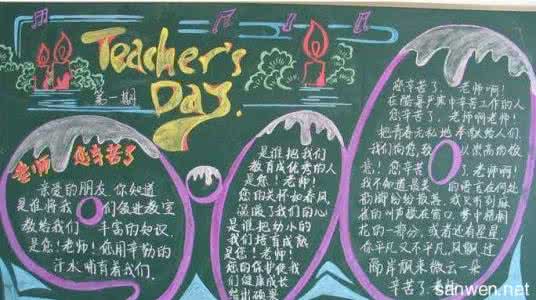 Teacher's
Day.
第一期
老师 您辛苦了
亲爱的朋友 你知道
是谁将我们领进教室
教给我们 丰富的知识
是您!老师!您用辛勤的
汗水哺育着我们.
是谁把我们
教育成优秀的人
是您!老师!
您的关怀如春风,
温暖了我们的心
是谁把幼小的
我们培育成熟
是您!老师!
您的保护使我
们健康成长
结出硕果
您辛苦了,老师啊!
在酷暑严寒中辛苦工作的人
您辛苦了,老师啊老师!
把青春无私地奉献给人们.
我们向您,致 以崇高的敬
意!您辛苦 了,老师啊!
我不知道最美 的语言在何处
花的一部分,或者还有星星.
你平凡又不平凡,风飘过
雨岸飘来微云一朵
辛苦了
sanwen.net